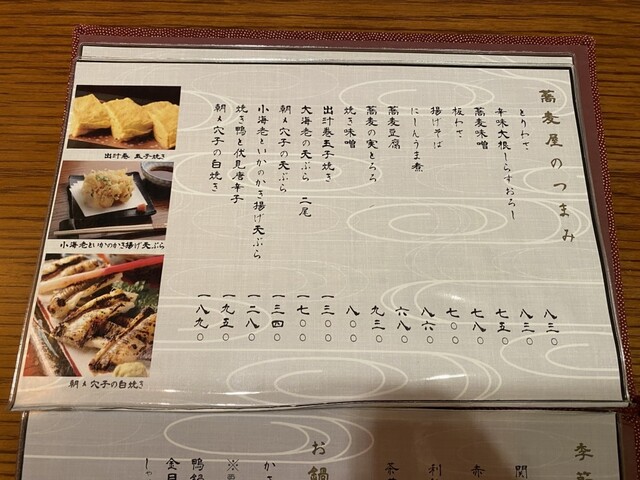 蕎麦屋のつまみ
とりわさ 八三〇
辛味大根しらすおろし 八三〇
蕎麦味噌 七五〇
板わさ 七八〇
揚げそば 七〇〇
にしんうま煮 八六〇
蕎麦豆腐 六八〇
蕎麦の実とろろ 九三〇
焼き味噌 八〇〇
出汁巻玉子焼き 一三〇〇
大海老の天ぷら 二尾 一七〇〇
朝〆穴子の天ぷら 一三四〇
小海老といかのかき揚げ天ぷら 一二八〇
焼き鴨と伏見唐辛子 一九五〇
朝〆穴子の白焼き 一八九〇
出汁巻 玉子焼き
小海老といかのかき揚げ天ぷら
朝〆穴子の白焼き
季節
関
赤
利
茶
お鍋
かき
※
鴨鍋
金目
しゃ